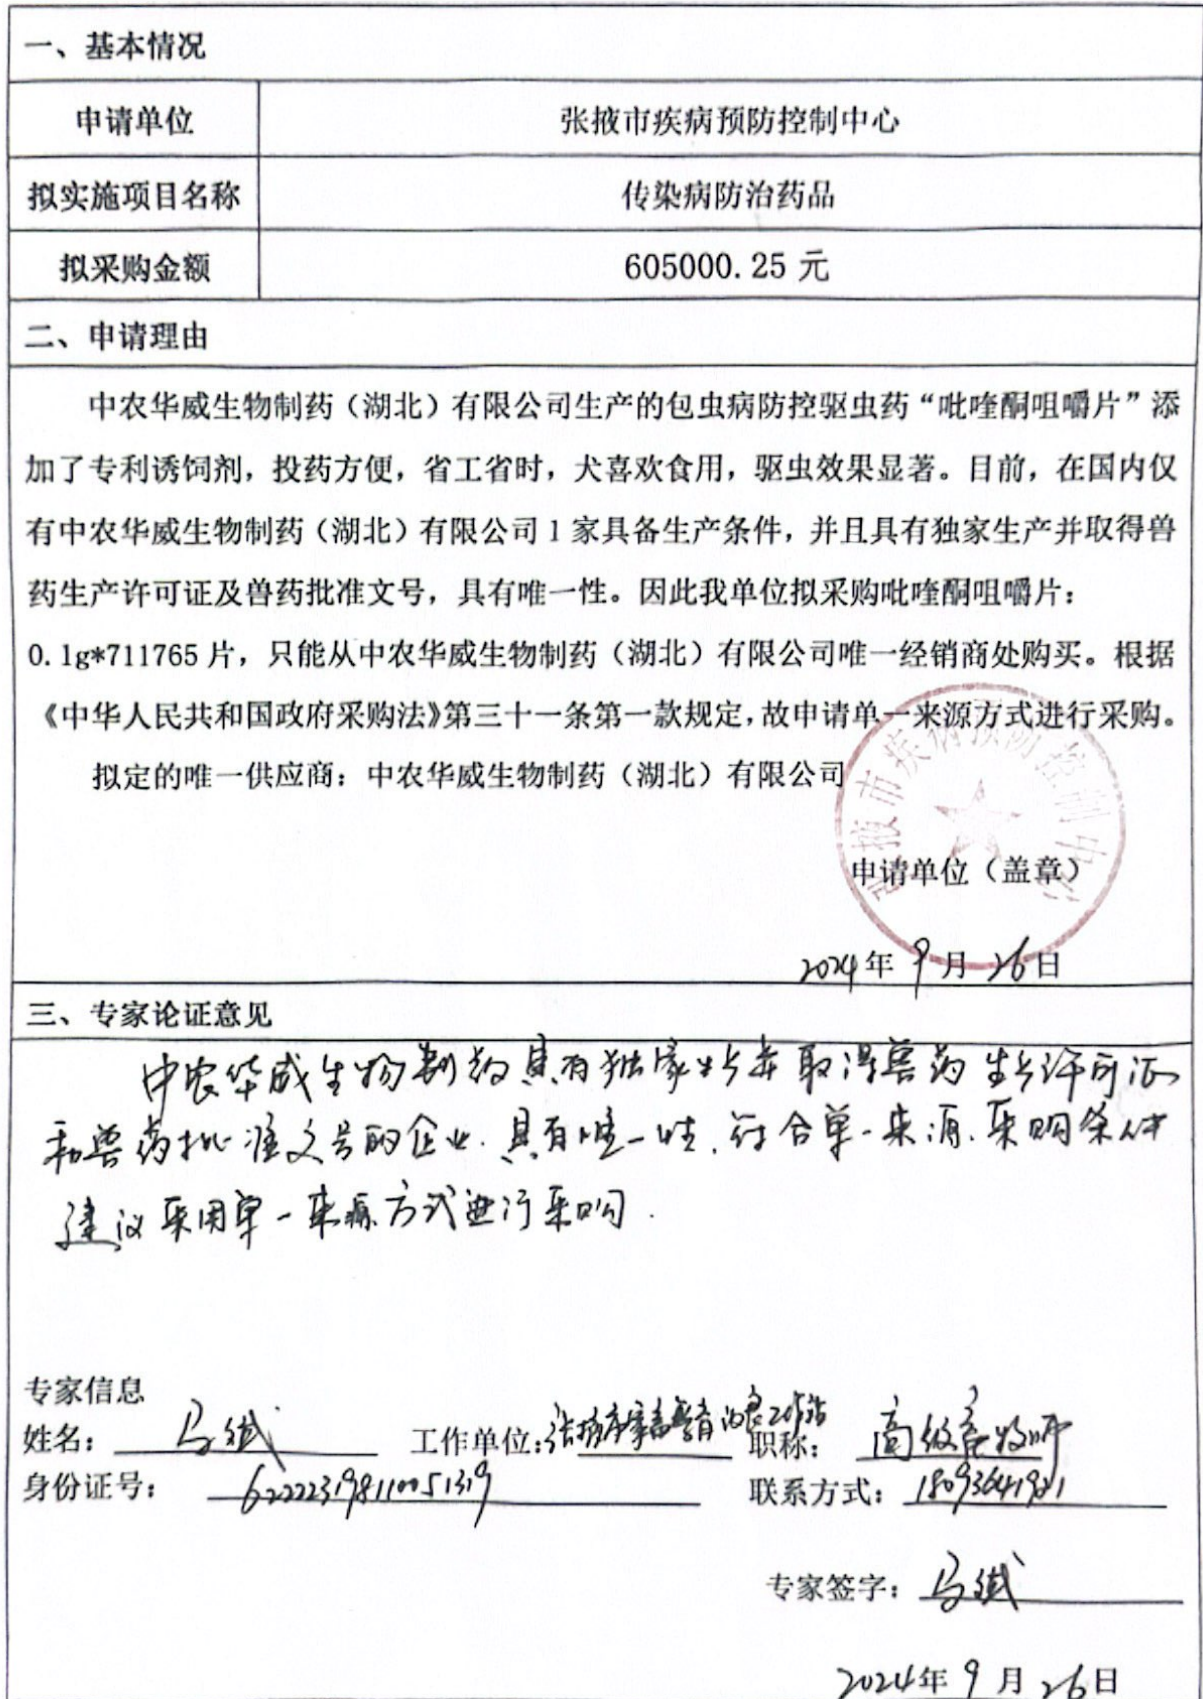 一、基本情况
申请单位 张掖市疾病预防控制中心
拟实施项目名称 传染病防治药品
拟采购金额 605000.25 元
二、申请理由
中农华威生物制药（湖北）有限公司生产的包虫病防控驱虫药“吡喹酮咀嚼片”添
加了专利诱饲剂，投药方便，省工省时，犬喜欢食用，驱虫效果显著。目前，在国内仅
有中农华威生物制药（湖北）有限公司 1 家具备生产条件，并且具有独家生产并取得兽
药生产许可证及兽药批准文号，具有唯一性。因此我单位拟采购吡喹酮咀嚼片：
0.1g*711765 片，只能从中农华威生物制药（湖北）有限公司唯一经销商处购买。根据
《中华人民共和国政府采购法》第三十一条第一款规定，故申请单一来源方式进行采购。
拟定的唯一供应商：中农华威生物制药（湖北）有限公司
张掖市疾病预防控制中心
申请单位（盖章）
2024年 9 月 26日
三、专家论证意见
中农华威生物制药具有独家生产并取得兽药生产许可证
和兽药批准文号的企业.具有唯一性.符合单一来源.采购条件
建议采用单一来源方式进行采购.
专家信息
姓名： 马 工作单位： 职称： 高级畜牧师
身份证号： 联系方式：
专家签字： 马
2024年 9 月 26日